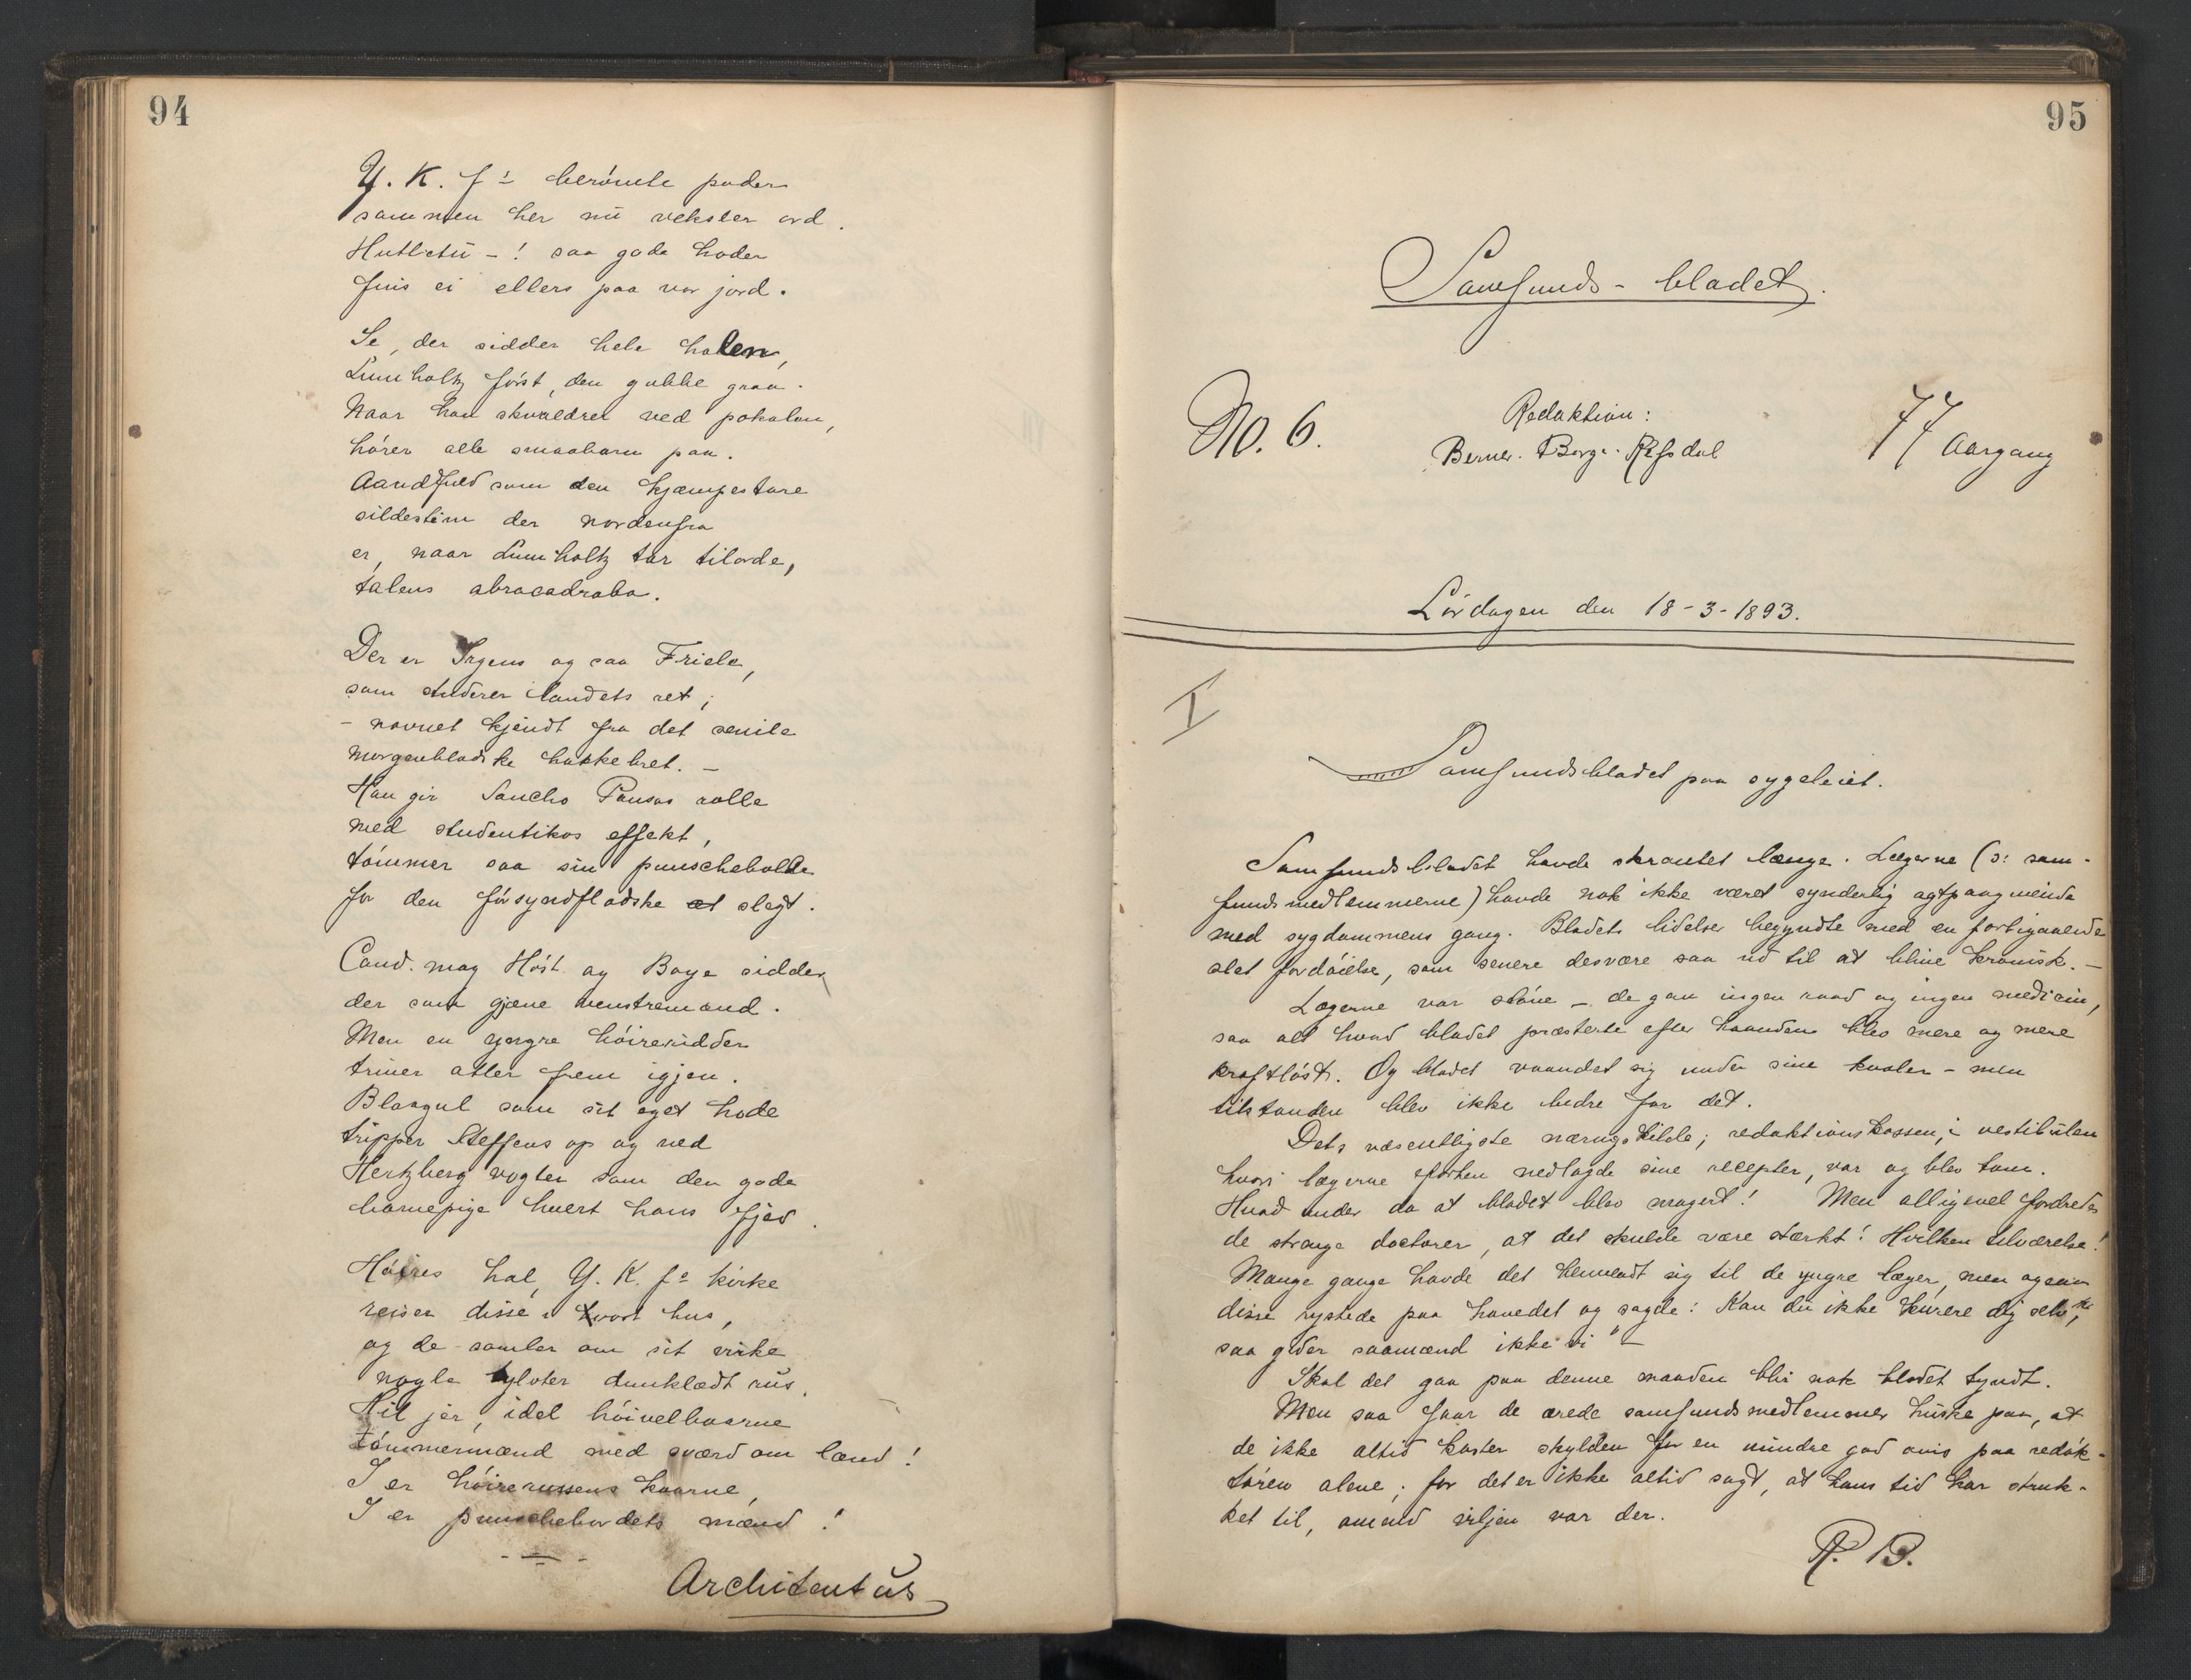 94
Y. K. fs berömte poder
sammen her nu veksler ord.
Huttetu - ! saa gode hoder
finis ei ellers paa vor jord.
Se, der sidder hele halen,
Lumholtz först, den gubbe graa.
Naar han skvaldrer ved pokalen,
hörer alle smaabarn paa.
Aandfuld som den kjæmpestore
sildestim der nordenfra
er, naar Lumholtz tar tilorde,
talens abracadraba.
Der er Irgens og saa Friele,
som studerer landets ret;
- navnet kjendt fra det senile
morgenbladske hakkebret. -
Han gir Sancho Pansas rolle
med studentikos effekt,
tömmer saa sin punschebolle
for den försyndflodske slegt.
Cand. mag Höst og Boye sidder
der som gjæve venstremænd.
Men en yngre höireridder
triner atter frem igjen.
Blaagul som sit eget hode
tripper Steffens op og ned
Hertzberg vogter som den gode
barnepige hvert hans fjed.
Höires hal, Y. K. fs kirke
reiser disse i vort hus,
og de samler om sit virke
nogle hyloter dunklædt rus.
Hil jer, idel höivelbaarne
tömmermænd med sværd om lænd!
I er höirerussens kaarne,
I er punschebordets mænd!
Architentus
95
Samfunds-bladet.
No. 6.
Redaktion:
Berner. Borge. Refsdal
77 Aargang
Lördagen den 18-3-1893.
I
Samfundsbladet paa sygeleiet.
Samfundsbladet havde skrantet længe. Lægerne (ɔ: sam-
fundsmedlemmerne) havde nok ikke været synderlig agtpaagivende
med sygdommens gang. Bladets lidelser begyndte med en forbigaaende
slet fordöielse, som senere desværre saa ud til at blive kronisk. -
Lægerne var slöve - de gav ingen raad og ingen medicin,
saa alt hvad bladet præsterte efter haanden blev mere og mere
kraftlöst. Og bladet vaandet sig under sine kvaler - men
tilstanden blev ikke bedre for det.
Dets væsentligste næringskilde; redaktionskassen, i vestibulen
hvori lægerne nedlagde sine recepter, var og blev tom.
Hvad under da at bladet blev magert! Men alligevel fordredes
de strenge doctorer, at det skulde være stærkt! Hvilken tilværelse!
Mange gange havde det henvendt sig til de yngre læger, men ogsaa
disse rystede paa hovedet og sagde: Kan du ikke kurere dig selv,
saa gider saamænd ikke vi" -
Skal det gaa paa denne maaden blir nok bladet tyndt.
Men saa faar de ærede samfundsmedlemmer huske paa, at
de ikke altid kaster skylden for en mindre god avis paa redak-
tören alene; for det er ikke altid sagt, at hans tid har struk-
ket til, omend viljen var der.
R. B.